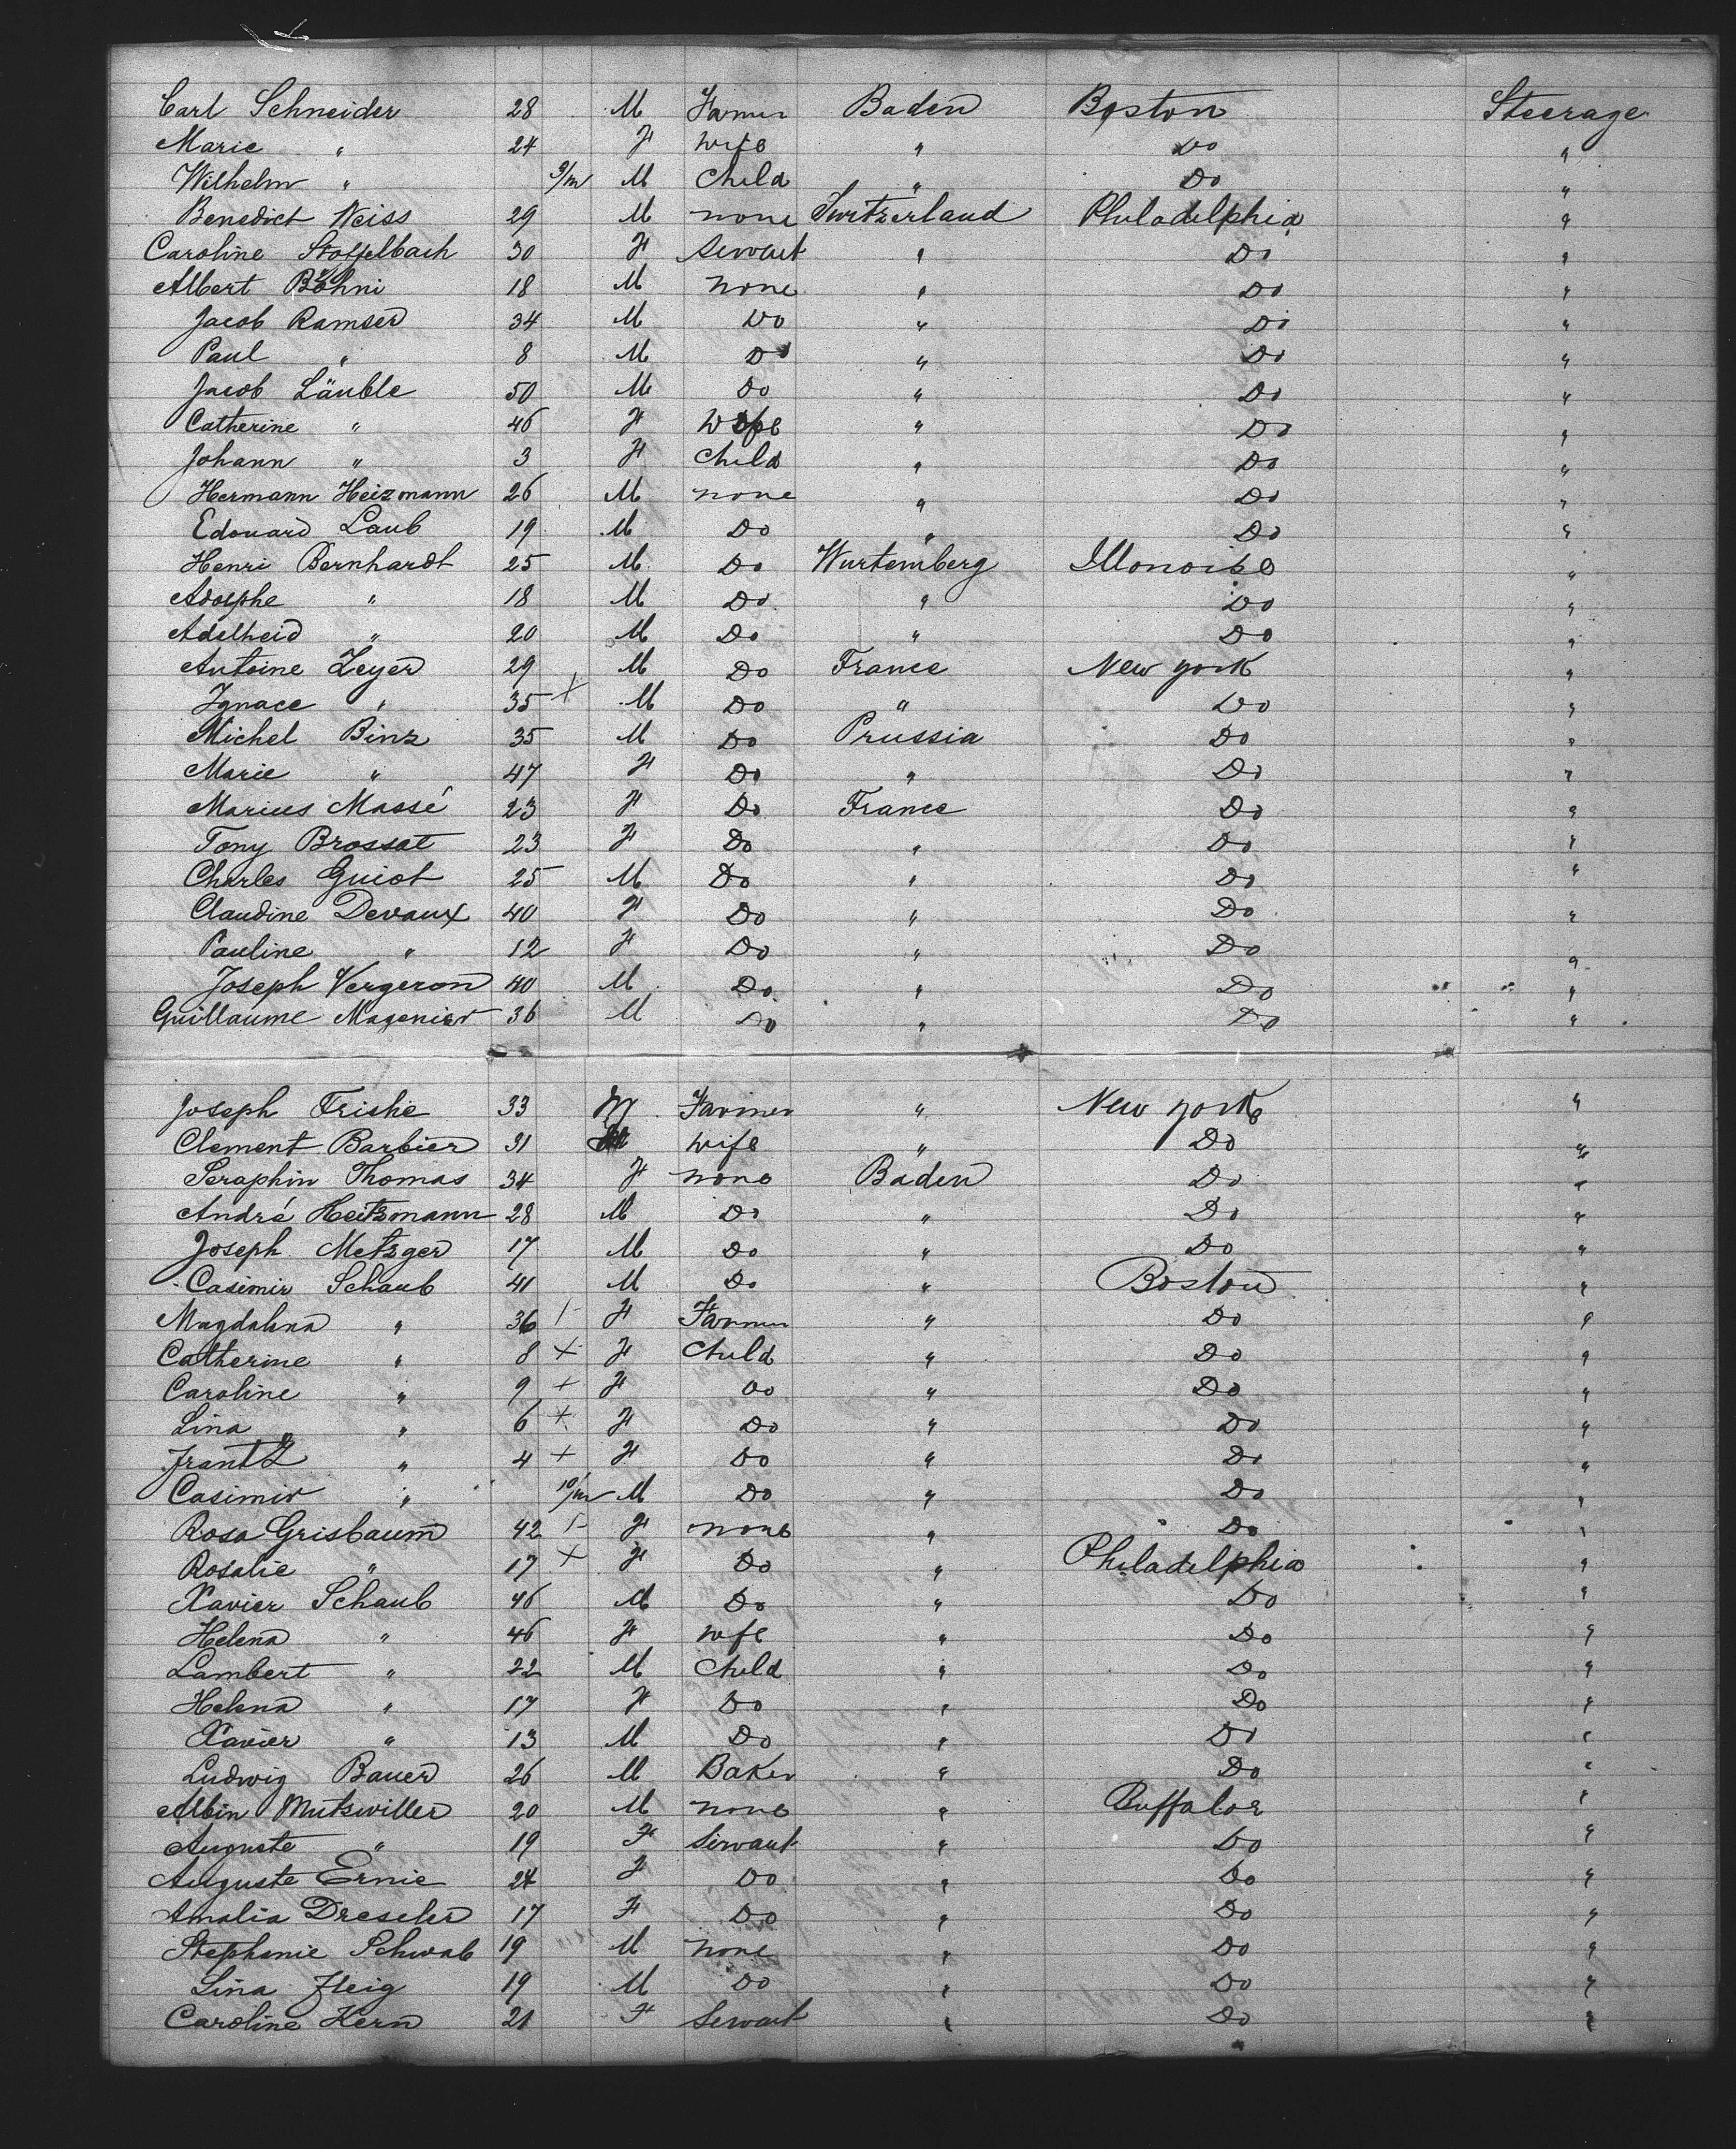 Carl Schneider 28 M Farmer Baden Boston Steerage
Marie " 24 F wife " Do "
Wilhelm " 9/m M Child " Do "
Benedict Weiss 29 M none Switzerland Philadelphia "
Caroline Stoffelbach 30 F Servant " Do "
Albert Böhni 18 M none " Do "
Jacob Ramser 34 M Do " Do "
Paul " 8 M Do " Do "
Jacob Läuble 50 M Do " Do "
Catherine " 46 F Wife " Do "
Johann " 3 F Child " Do "
Hermann Heizmann 26 M none " Do "
Edouard Laub 19 M Do " Do "
Henri Bernhardt 25 M Do Wurtemberg Illonoise "
Adolphe " 18 M Do " Do "
Adelheid " 20 M Do " Do "
Antoine Zeyer 29 M Do France New york "
Ignace " 35 + M Do " Do "
Michel Binz 35 M Do Prussia Do "
Marie " 47 F Do " Do "
Marius Massé 23 F Do France Do "
Tony Brossat 23 F Do " Do "
Charles Guiot 25 M Do " Do "
Claudine Devaux 40 F Do " Do "
Pauline " 12 F Do " Do "
Joseph Vergeron 40 M Do " Do "
Guillaume Magenier 36 M Do " Do "
Joseph Frishe 33 M Farmer " New york "
Clement Barbier 31 wife " Do "
Seraphin Thomas 34 F none Baden Do "
André Heitzmann 28 M Do " Do "
Joseph Metzger 17 M Do " Do "
Casimir Schaub 41 M Do " Boston "
Magdalena " 36 F Farmer " Do "
Catherine " 8 + F Child " Do "
Caroline " 9 + F Do " Do "
Lina " 6 + F Do " Do "
Frantz " 4 + F Do " Do "
Casimir " 10/m M Do " Do "
Rosa Grisbaum 42 F none " Do "
Rosalie " 17 + F Do " Philadelphia "
Xavier Schaub 46 M Do " Do "
Helena " 46 F wife " Do "
Lambert " 22 M Child " Do "
Helena " 17 F Do " Do "
Xavier " 13 M Do " Do "
Ludwig Bauer 26 M Baker " Do "
Albin Mutswiller 20 M none " Buffaloe "
Auguste " 19 F Servant " Do "
Auguste Ernie 24 F Do " Do "
Amalia Dreseler 17 F Do " Do "
Stephanie Schwab 19 M none " Do "
Lina Fleig 19 M Do " Do "
Caroline Kern 21 F Servant " Do "